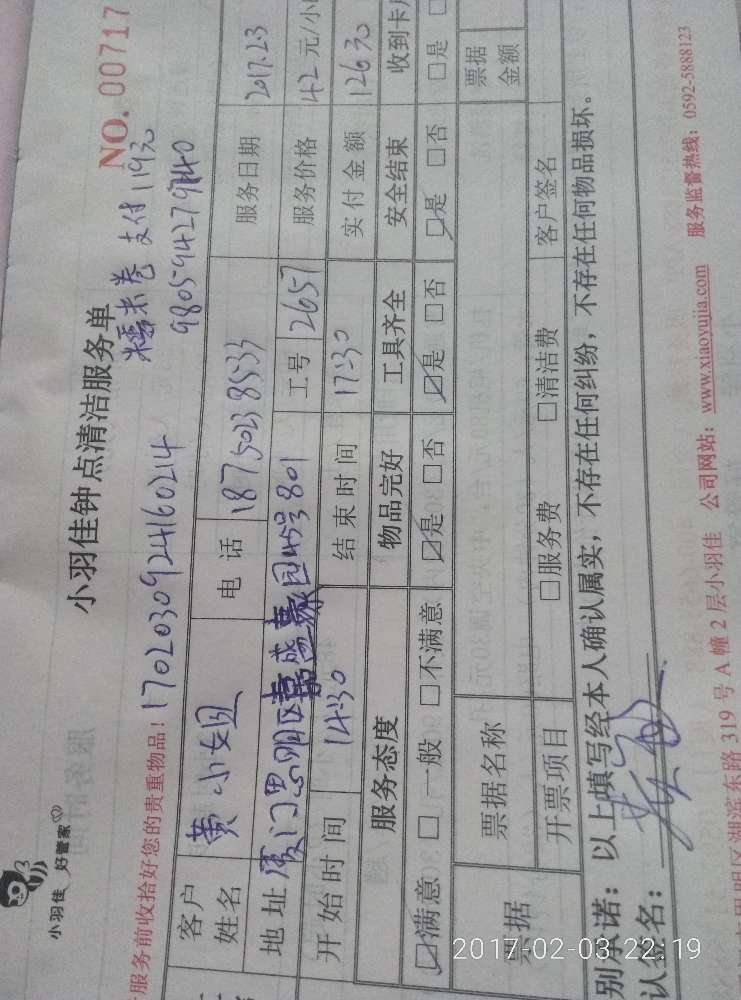 小羽佳 好管家
小羽佳钟点清洁服务单
NO. 00717
服务前收拾好您的贵重物品!
17020309924160214
糯米卷 支付119元
客户姓名 黄小姐 电话 18750238533 服务日期 2017.2.3
地址 厦门思明区 园45号801 工号 2657 服务价格 42元/小
开始时间 14:30 结束时间 17:30 实付金额 126元
服务态度 物品完好 工具齐全 安全结束 收到卡
☑满意 □一般 □不满意 ☑是 □否 ☑是 □否 ☑是 □否 □是
票据 票据名称 票据金额
开票项目 □服务费 □清洁费 客户签名
别承诺：以上填写经本人确认属实，不存在任何纠纷，不存在任何物品损坏。
认签名：
明区湖滨东路319号A幢2层小羽佳 公司网站：www.xiaoyujia.com 服务监督热线：0592-5888123
2017-02-03 22:19